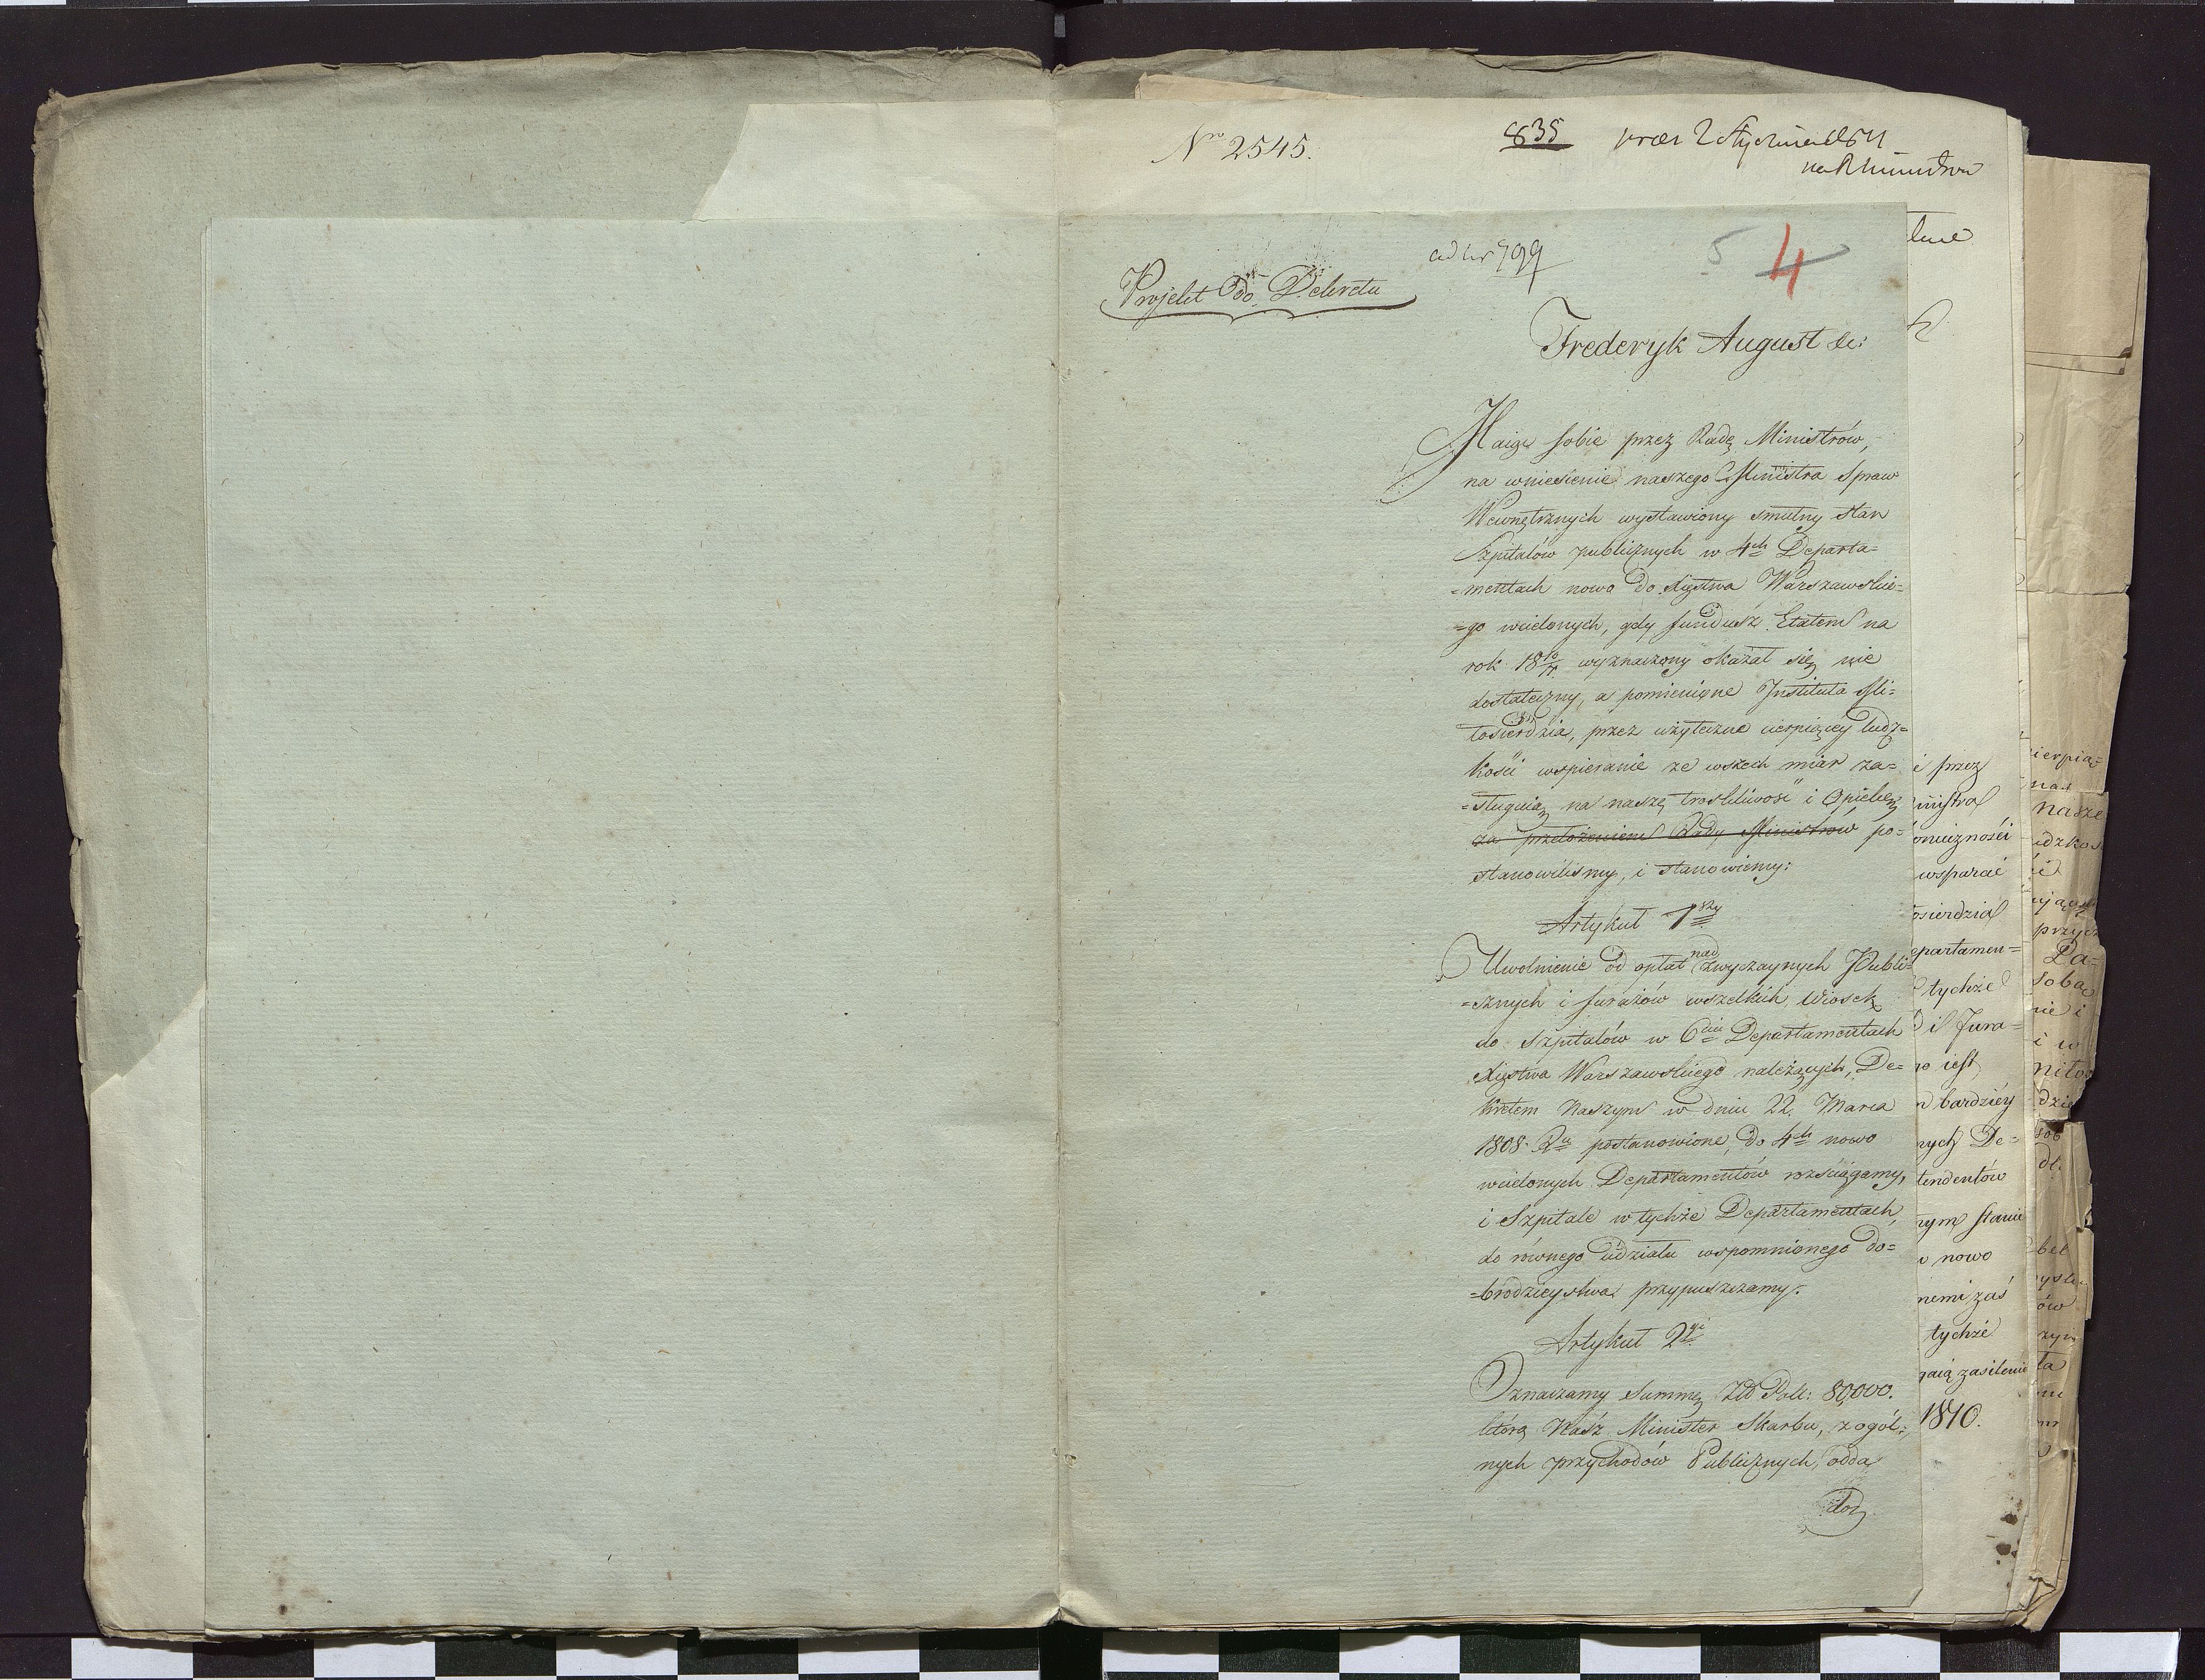 Nro 2545.
835
2 Stycznia 1811
ad Nr 799
5 4
Projekt do Dekretu
Frederyk August &c:
Maiąc sobie przez Radę Ministrów,
na wniesienie naszego Ministra Spraw
Wewnętrznych wystawiony smutny stan
Szpitalów publicznych w 4ch Departa=
=mentach nowo do Xięstwa Warszawskie=
=go wcielonych, gdy fundusz Etatem na
rok 18 10/11 wyznaczony okazał się nie
dostateczny, a pomienione Instituta Mi=
łosierdzia, przez użyteczne cierpiącey ludz=
kości wspieranie ze wszech miar za=
=sługuią na naszę troskliwość i Opiekę,
za przełożeniem Rady Ministrow po=
stanowiliśmy, i stanowiemy:
Artykuł 1szy
Uwolnienie od opłat nadzwyczaynych Publi=
=cznych i furażów wszelkich Wiosek
do Szpitalów w 6ciu Departamentach
Xięstwa Warszawskiego należących, De=
kretem Naszym w dniu 22 Marca
1808 Ru postanowione, do 4ch nowo
wcielonych Departamentów rozściągamy,
i Szpitale w tychże Departamentach,
do równego udziału wspomnionego do=
=brodzieystwa przypuszczamy.
Artykuł 2gi
Oznaczamy Summę Złł Poll: 80,000.
którą Nasz Minister Skarbu, z ogól=
nych przychodów Publicznych, odda
do
i przez
wsparać
tychże
i Fura=
iest
bardziey
De=
nowo
tychże
zasilenie
1810.